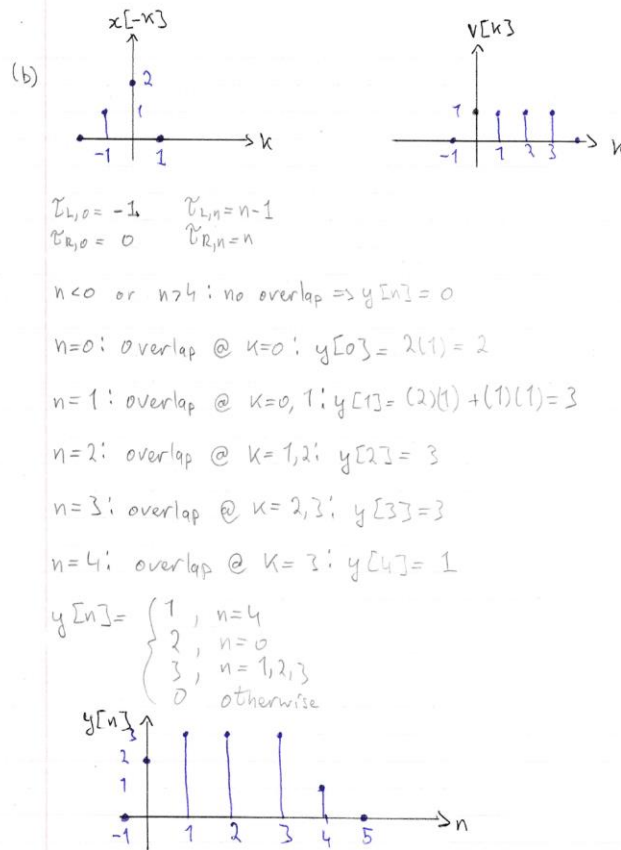 (b)
x[-k]
2
1
-1
1
k
v[k]
1
-1
1
2
3
k
τL,0 = -1 τL,n = n-1
τR,0 = 0 τR,n = n
n<0 or n>4: no overlap => y[n] = 0
n=0: overlap @ k=0: y[0] = 2(1) = 2
n=1: overlap @ k=0,1: y[1] = (2)(1) + (1)(1) = 3
n=2: overlap @ k=1,2: y[2] = 3
n=3: overlap @ k=2,3: y[3]=3
n=4: overlap @ k=3: y[4] = 1
y[n] = { 1, n=4
2, n=0
3, n=1,2,3
0 otherwise
y[n]
3
2
1
-1 1 2 3 4 5
n